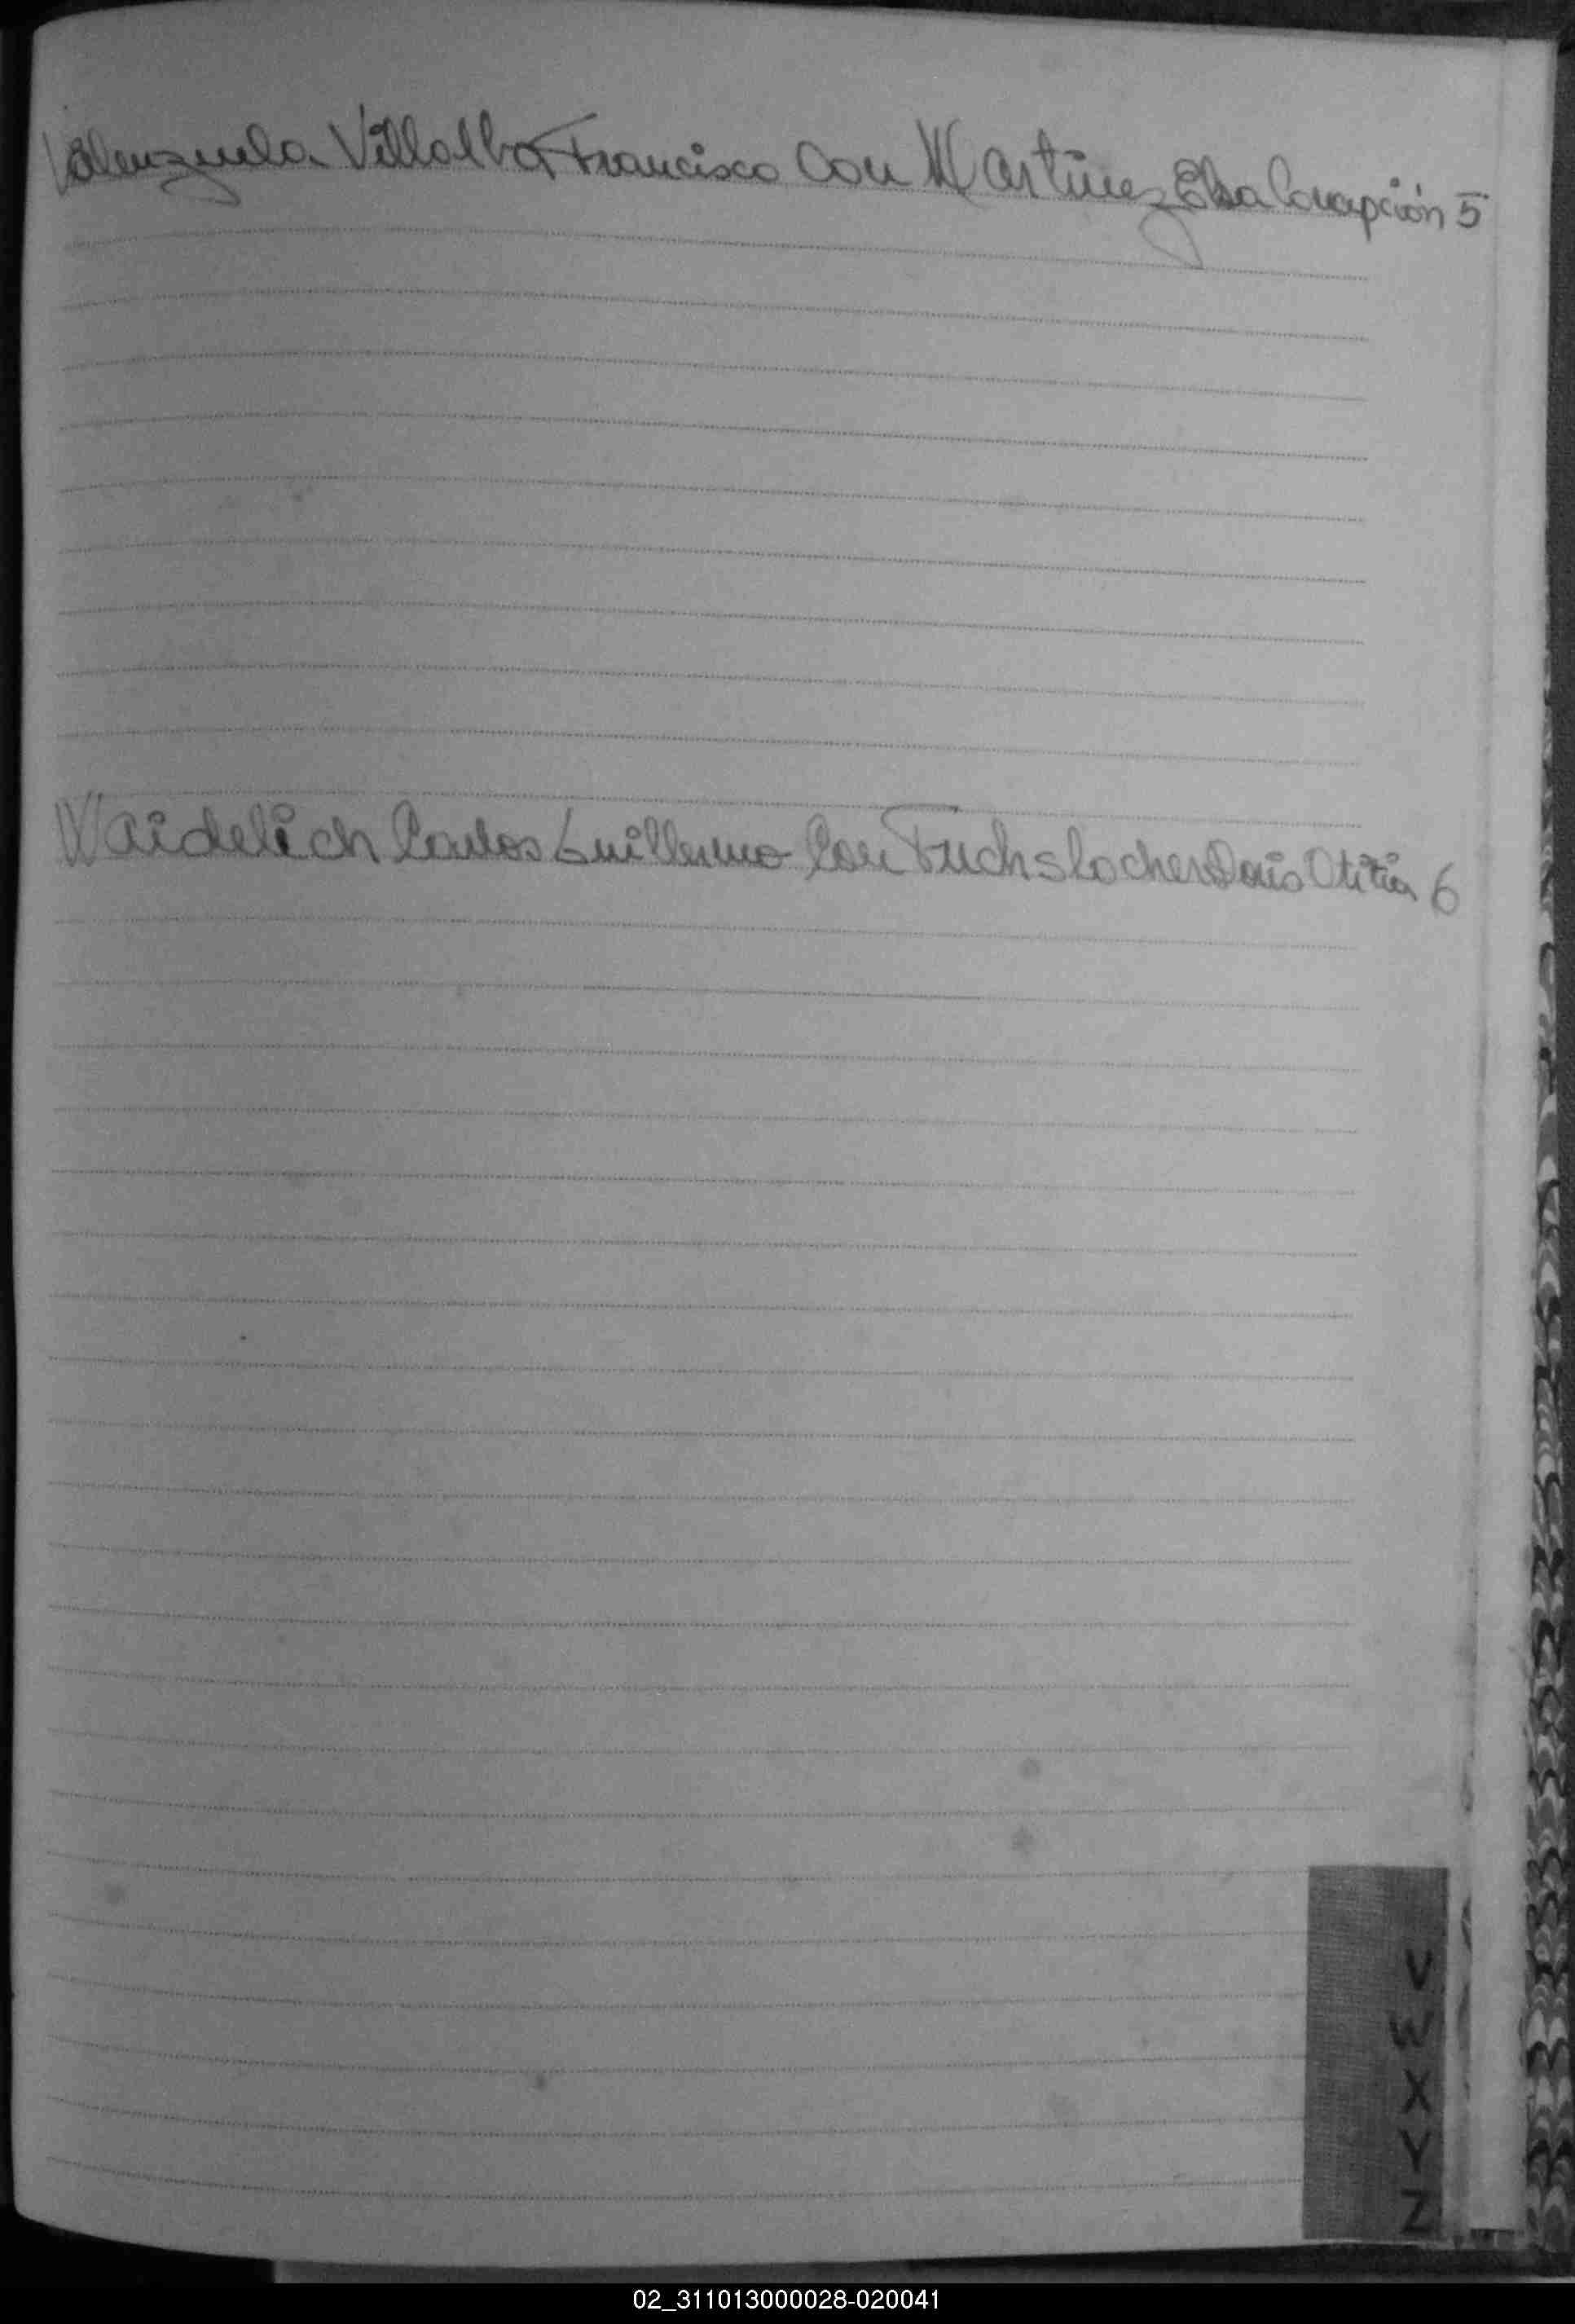 Valenzuela Villalba Francisco Con Martinez Elsa Concepción 5
Waidelich Carlos Guillermo Con Fuchslocher Doris Otitia 6
V
W
X
Y
Z
02_311013000028-020041